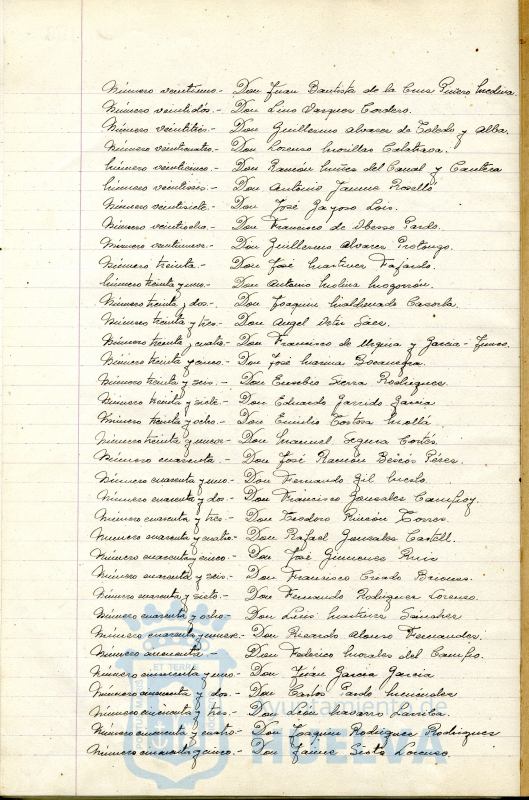 Número veintiuno.- Don Juan Bautista de la Cruz Piñero
Número veintidós.- Don Lino Vazquez Cordero.
Número veintitrés.- Don Guillermo Alvarez de Toledo y Alba.
Número veinticuatro.- Don Lorenzo Morillas Calatrava.
Número veinticinco.- Don Ramón Núñez del Canal y Cantera
Número veintiseis.- Don Antonio Jaume Roselló
Número veintisiete.- Don José Gayoso Lois.
Número veintiocho.- Don Francisco de Obesso Pardo.
Número veintinueve.- Don Guillermo Alvarez Protongo.
Número treinta.- Don José Martinez Fajardo.
Número treinta y uno.- Don Antonio Molina Mogorrón.
Número treinta y dos.- Don Joaquin Maldonado Cazorla.
Número treinta y tres.- Don Angel Saez.
Número treinta y cuatro.- Don Francisco de y Garcia-Junco.
Número treinta y cinco.- Don José Marina Bocanegra.
Número treinta y seis.- Don Eusebio Sierra Rodriguez.
Número treinta y siete.- Don Eduardo Garrido Garcia
Número treinta y ocho.- Don Emilio Tortosa Mollá
Número treinta y nueve.- Don Manuel Segura Cortés.
Número cuarenta.- Don José Ramón Bescós Pérez
Número cuarenta y uno.- Don Fernando Gil
Número cuarenta y dos.- Don Francisco Gonzalez Camifroy
Número cuarenta y tres.- Don Teodoro Rincón Torres.
Número cuarenta y cuatro.- Don Rafael Gonzalez Castell.
Número cuarenta y cinco.- Don José Gimenez Ruiz
Número cuarenta y seis.- Don Francisco Criado Briones.
Número cuarenta y siete.- Don Fernando Rodriguez Lorenzo.
Número cuarenta y ocho.- Don Luis Martinez Sánchez
Número cuarenta y nueve.- Don Ricardo Alonso Fernandez.
Número cincuenta.- Don Federico Morales del Campo.
Número cincuenta y uno.- Don Julián Garcia Garcia
Número cincuenta y dos.- Don Carlos Pardo Menéndez
Número cincuenta y tres.- Don León Navarro Larriba.
Número cincuenta y cuatro.- Don Joaquin Rodriguez Rodriguez
Número cincuenta y cinco.- Don Jaime Sixto Lorenzo.
ET TERRE
Ayuntamiento de
HUELVA